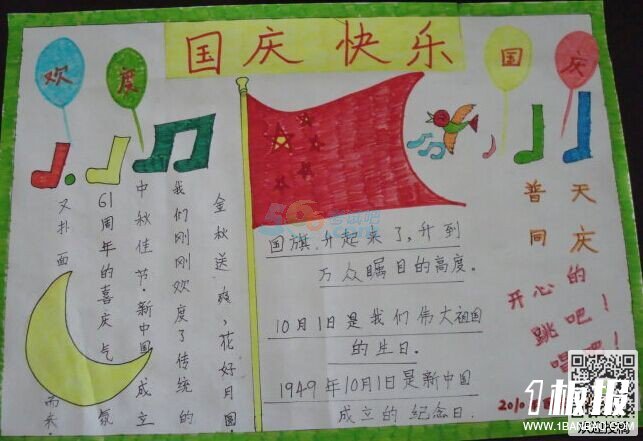 国庆 快乐
欢度
国庆
金秋送爽，花好月圆，
我们刚刚欢度了传统的
中秋佳节，新中国成立
61周年的喜庆气氛
又扑面而来
国旗升起来了，升到
万众瞩目的高度。
10月1日是我们伟大祖国
的生日。
1949年10月1日是新中国
成立的纪念日.
普天
同庆
开心的
跳吧！
唱吧！
2010
1板报
WWW.1BANBAO.COM